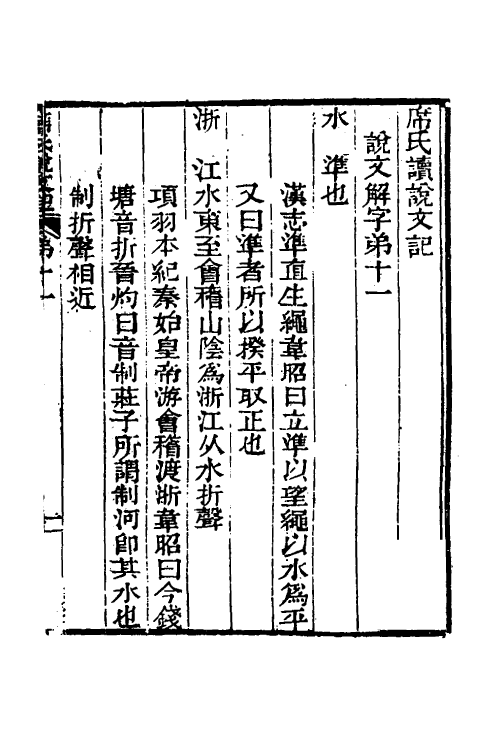 席氏讀說文記
說文解字弟十一
水　準也
漢志準直生繩韋昭曰立準以望繩以水爲平
又曰準者所以揆平取正也
浙　江水東至會稽山陰爲浙江从水折聲
項羽本紀秦始皇帝游會稽渡浙韋昭曰今錢
塘音折晉灼曰音制莊子所謂制河卽其水也
制折聲相近
席氏讀說文記第十一